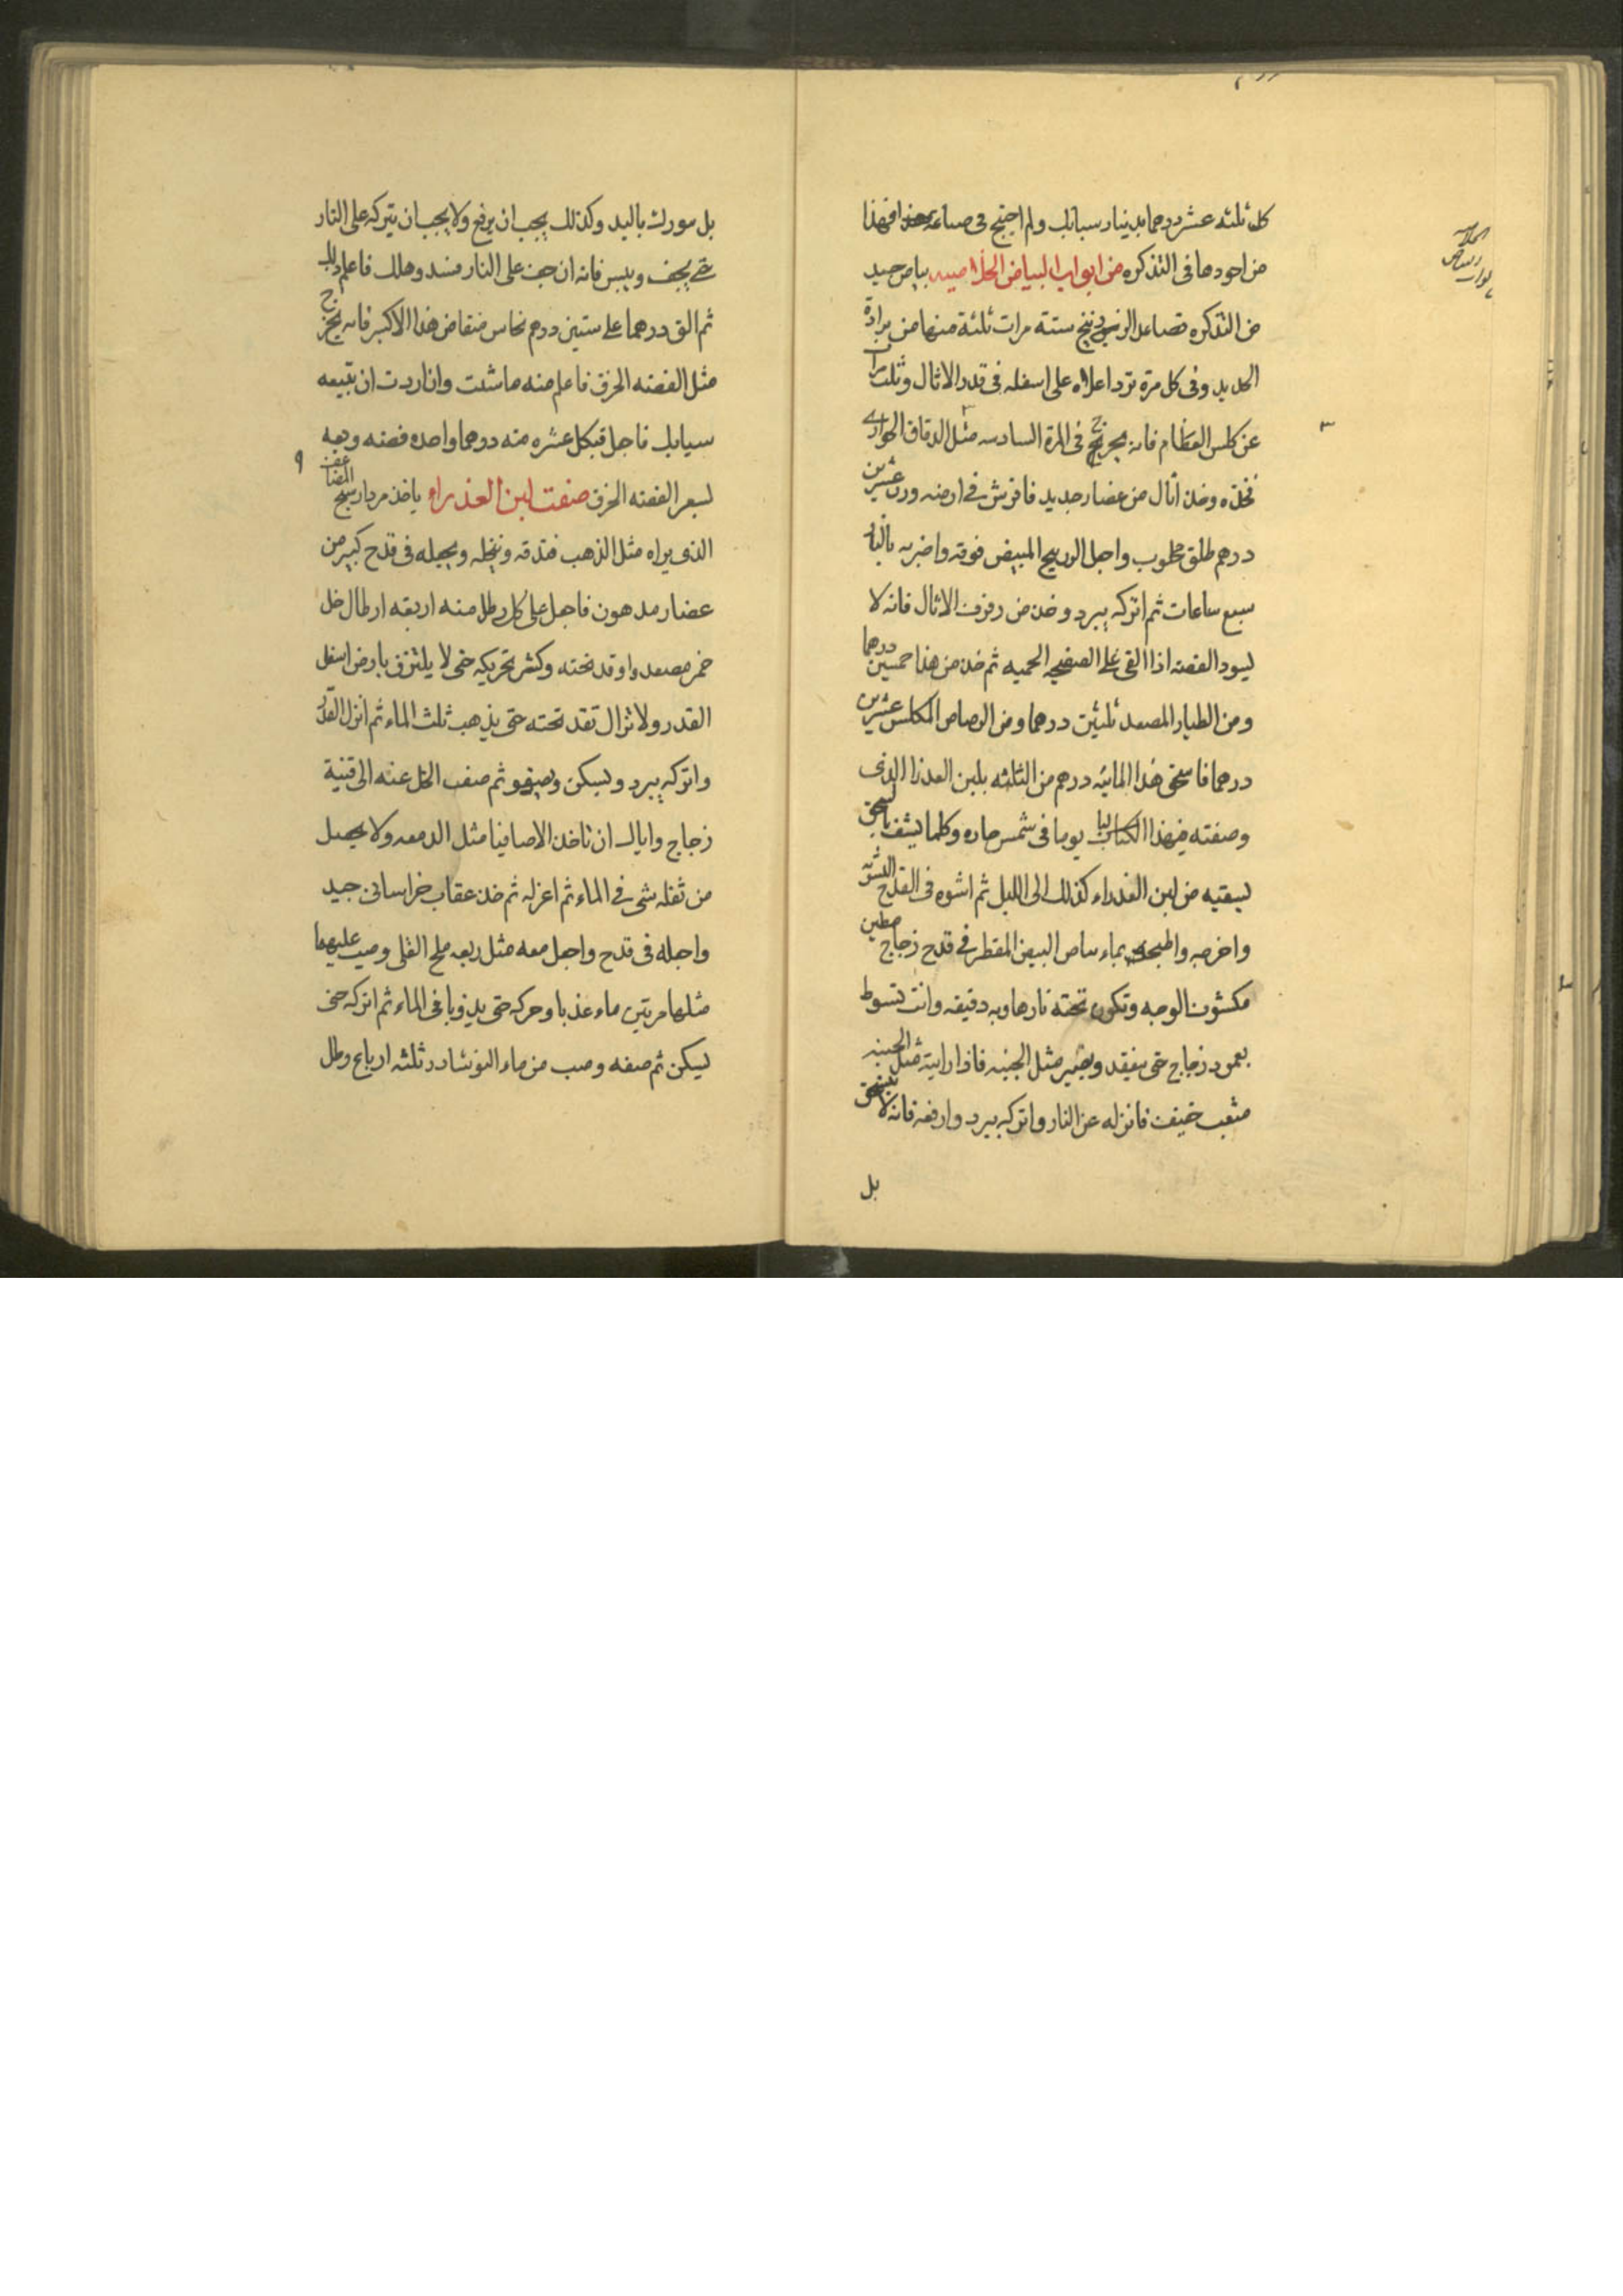 كل ثلثه عشر درهما بدينار سبايك ولم احتج فى صباعه فهذا
من اجودها فى التذكره من ابواب البياض الخلاصيه بياض جيد
من التذكره تصاعد الزرنيخ ستة مرات ثلثة منها من برادة
الحديد وفى كل مرة ترد اعلاه على اسفله فى قدر الاثال وثلث مرات
عن كلس العظام فانه يخرج فى المرة السادسه مثل الدقاق الحوارى
فخذه وخذ اثال من غضار جديد فافرش فى ارضه وزن عشرين
درهم طلق محلوب واجعل الزرنيخ المبيض فوقه واضربه بالنار
سبع ساعات ثم اتركه يبرد وخذ من رفرف الاثال فانه لا
يسود الفضه اذا القى على الصفيحه المحميه ثم خذ من هذا خمسين درهما
ومن الطيار المصعد ثلثين درهما ومن الرصاص المكلس عشرين
درهما فاسحق هذا المائه درهم من الثلثه بلبن العذرا الذى
وصفته فى هذا الكتاب يوما فى شمس حاره وكلما ينشف بالسحق
تسقيه من لبن العذراء كذلك الى الليل ثم اشوه فى القدح التشويه
واخرجه واطبخه بماء بياض البيض المقطر فى قدح زجاج مطين
مكشوف الوجه وتكون تحته نارهاويه دقيقه وانت تسوط
بعمود زجاج حتى ينعقد ويصير مثل الجبنه فاذا رايته مثل الجبنه
متعب خفيف فانزله عن النار واتركه يبرد وارفعه فانه لا ينسحق
بل
بل مورك باليد وكذلك يجب ان يرفع ولا يجب ان يتركه على النار
حتى يجف وييبس فانه ان جف على النار فسد وهلك فاعلم ذلك
ثم الق درهما على ستين درهم نحاس منقا من هذا الاكسير فانه يخرج
مثل الفضه الحرق فاعلم منه ما شئت وان اردت ان تبيعه
سبايك فاجعل قبكل عشره منه درهما واحده فضه وبعه
لسعر الفضه الحرق صفت لبن العذراء ياخذ مرداسنج
الذى يراه مثل الذهب فتدقه وتنخله ويجعله فى قدح كبير من
غضار مدهون فاجعل على كل رطل منه اربعه ارطال خل
خمر مصعد واوقد تحته وكثر تحريكه حتى لا يلتزق بارض اسفل
القدر ولا تزال تقد تحته حتى يذهب ثلث الماء ثم انزل القدر
واتركه يبرد ويسكن ويصفو ثم صف الخل عنه الى قنينة
زجاج واياك ان تاخذ الاصافيا مثل الدمعه ولا يحصل
من ثفله شى فى الماء ثم اعزله ثم خذ عقاب خراسانى جيد
واجعله فى قدح واجعل معه مثل ربعه ملح القلى وصب عليهما
مثلهما مرتين ماء عذبا وحركه حتى يذوبا فى الماء ثم اتركه حتى
يسكن ثم صفه وصب من ماء النوشادر ثلثه ارباع رطل